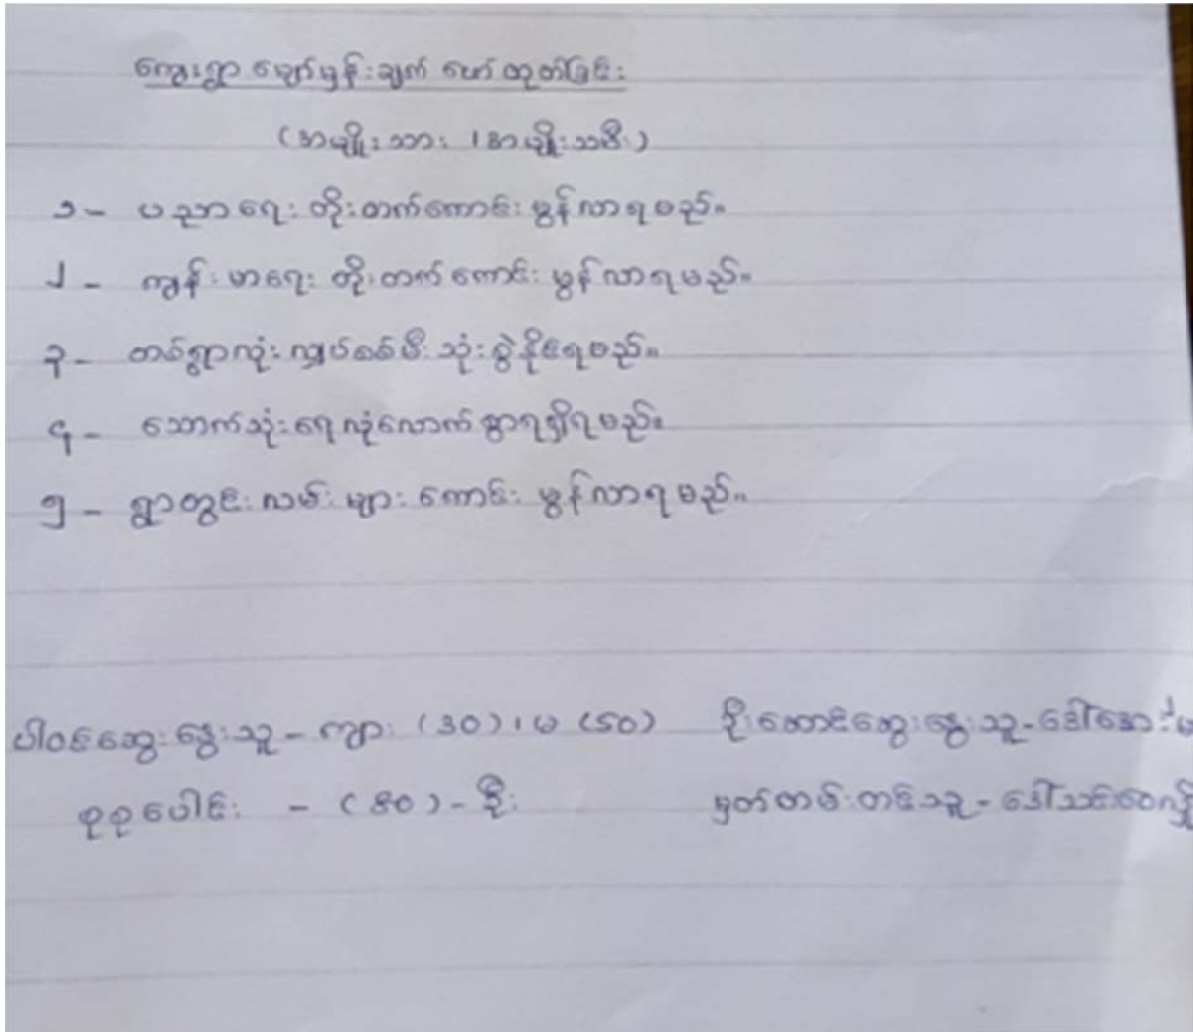 ကျေးရွာ မျှော်မှန်းချက် ဖော်ထုတ်ခြင်း
(အမျိုးသား ၊ အမျိုးသမီး)
၁ - ပညာရေး တိုးတက်ကောင်းမွန်လာရမည်။
၂ - ကျန်းမာရေး တိုးတက်ကောင်းမွန်လာရမည်။
၃ - တစ်ရွာလုံး လျှပ်စစ်မီး သုံးစွဲနိုင်ရမည်။
၄ - သောက်သုံးရေ လုံလောက်စွာရရှိရမည်။
၅ - ရွာတွင်းလမ်းများ ကောင်းမွန်လာရမည်။
ပါဝင်ဆွေးနွေးသူ - ကျား (30) ၊ မ (50) ဦးဆောင်ဆွေးနွေးသူ - ဒေါ်
စုစုပေါင်း - (80) - ဦး မှတ်တမ်းတင်သူ - ဒေါ်သင်း